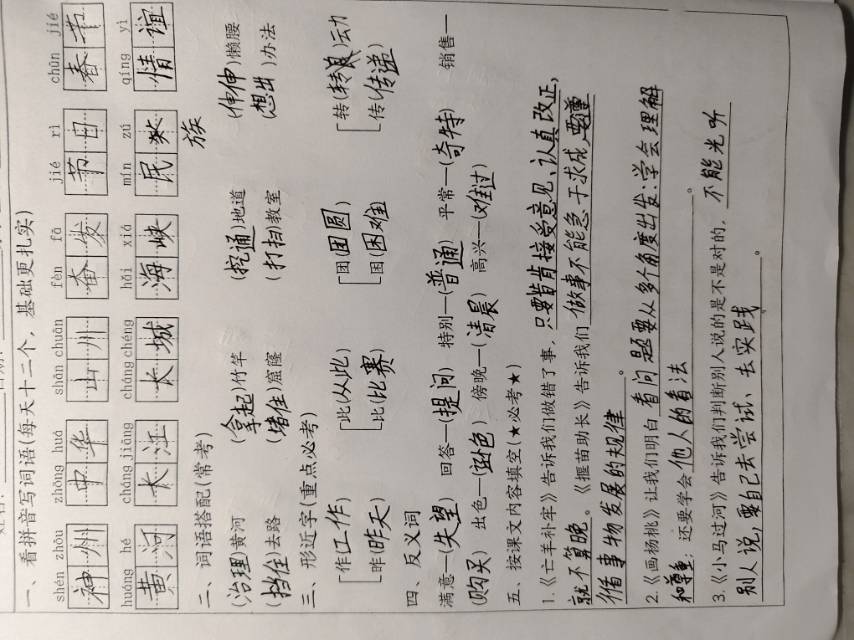 一、看拼音写词语(每天十二个，基础更扎实)
shén zhōu zhōng huá shān chuān fèn fā jié rì chūn jié
神州 中华 山川 奋发 节日 春节
huáng hé cháng jiāng cháng chéng hǎi xiá mín zú qíng yì
黄河 长江 长城 海峡 民 情谊
族
二、词语搭配(常考)
(治理)黄河 (拿起)竹竿 (挖通)地道 (伸伸)懒腰
(挡住)去路 (堵住)窟窿 (打扫)教室 (想出)办法
三、形近字(重点必考)
作(工作) 此(从此) 团(团圆) 转(转)运动
昨(昨天) 比(比赛) 困(困难) 传(传递)
四、反义词
满意—(失望) 回答—(提问) 特别—(普通) 平常—(奇特) 销售—
(购买) 出色—(逊色) 傍晚—(清晨) 高兴—(难过)
五、按课文内容填空(★必考★)
1.《亡羊补牢》告诉我们做错了事，只要肯接受意见、认真改正，
就不算晚。《揠苗助长》告诉我们做事不能急于求成，要遵
循事物发展的规律。
2.《画杨桃》让我们明白看问题要从多个角度出发；学会理解
和尊重；还要学会他人的看法。
3.《小马过河》告诉我们判断别人说的是不是对的，不能光听
别人说，要自己去尝试、去实践。